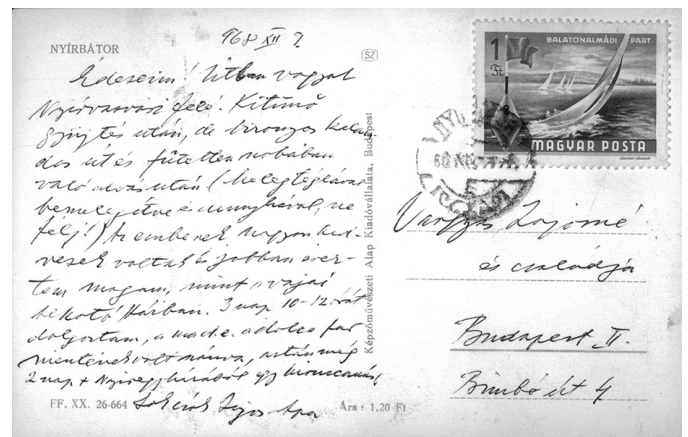 NYÍRBÁTOR
968 XII 7.
Édeseim! Útban vagyok
Nyírvasvári felé. Kitűnő
gyűjtés után, de bizonyos kalan-
dos út és fűtetlen szobában
való alvás után (melegtéglával
bemelegítve é dunyhával, ne
félj!) Az emberek nagyon ked-
vesek voltak és jobban érez-
tem magam, mint a vajai
alkotó házban. 3 nap 10-12 órát
dolgoztam, a mad.e. a dolce far
nientének volt szánva, aztán még
2 nap + Nyíregyházából egy
FF. XX. 26-664
Ára: 1,20 Ft
SZ
Képzőművészeti Alap Kiadóvállalata, Budapest
1 Ft
BALATONALMÁDI PART
MAGYAR POSTA
Vargyas Lajosné
és családja
Budapest II.
Bimbó út 4